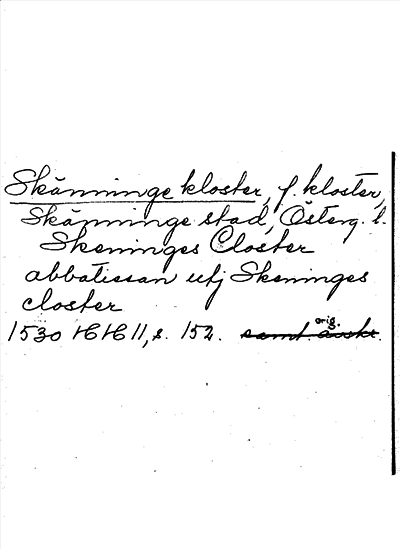 Skänninge kloster, f. kloster,
Skänninge stad, Österg. l.
Skeninges Closter
abbatissan utj Skeninges
closter
1530 HH 11, s. 152. samt. avskr. orig.